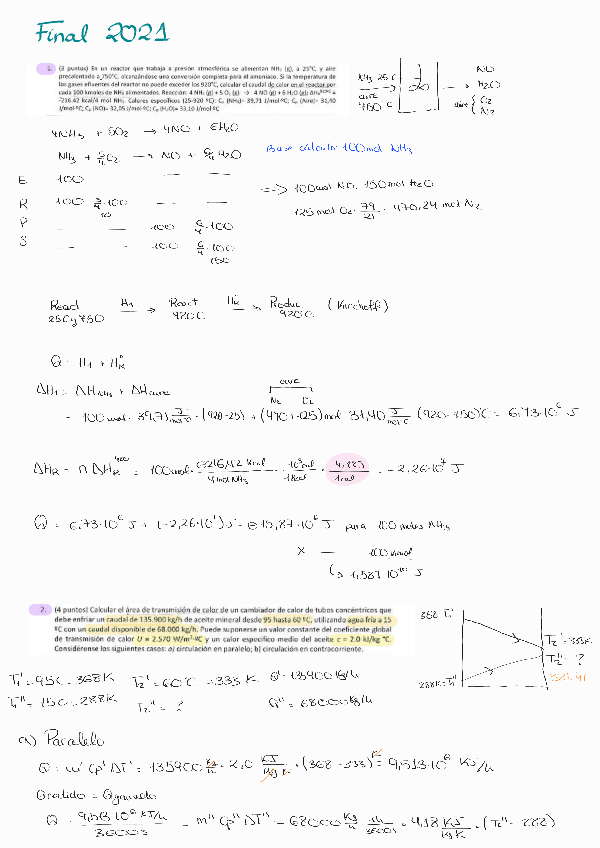 Final 2021
1. (3 puntos) En un reactor que trabaja a presión atmosférica se alimentan NH₃ (g), a 25°C, y aire
precalentado a 750°C, alcanzándose una conversión completa para el amoniaco. Si la temperatura
de los gases efluentes del reactor no puede exceder los 920°C, calcular el caudal de calor en el reactor por
cada 100 kmoles de NH₃ alimentados. Reacción: 4 NH₃ (g) + 5 O₂ (g) → 4 NO (g) + 6 H₂O (g);
-216.42 kcal/4 mol NH₃. Calores específicos (25-920 ºC): Cₚ (NH₃)= 39,71 J/mol·ºC; Cₚ (Aire)= 31,40
J/mol·ºC; Cₚ (NO)= 32,05 J/mol·ºC; Cₚ (H₂O)= 33,10 J/mol·ºC
NH₃ 25C
aire
750 C
NO
H₂O
aire { O₂
N₂
4NH₃ + 5O₂ → 4NO + 6H₂O
NH₃ + 5/4 O₂ → NO + 6/4 H₂O
Base calculo: 100 mol NH₃
E 100 — —
R 100 5/4·100 — —
P — — 100 6/4·100
S — — 100 6/4·100
150
=> 100 mol NO, 150 mol H₂O
125 mol O₂ · 79/21 = 470,24 mol N₂
React H₁ → React → Produc (Kirchoff)
25C y 750 920C 920C
Q = H₁ + H°R
ΔH₁ = ΔHNH₃ + ΔHaire
aire
N₂ O₂
= 100 mol · 39,71 J/mol C · (920-25) + (470+125) mol 31,40 J/mol C (920-750)C = 6,73·10⁶ J
ΔHR = n ΔHR⁹²⁰ = 100 mol · (-216,42 kcal)/4 mol NH₃ · 10³ cal/1 kcal · 4,18J/1 cal = -2,26·10⁷ J
Q = 6,73·10⁶ J + (-2,26·10⁷) J = -15,87·10⁶ J para 100 moles NH₃
X — 100 kmol
2. (4 puntos) Calcular el área de transmisión de calor de un cambiador de calor de tubos concéntricos que
debe enfriar un caudal de 135.900 kg/h de aceite mineral desde 95 hasta 60 ºC, utilizando agua fría a 15
ºC con un caudal disponible de 68.000 kg/h. Puede suponerse un valor constante del coeficiente global
de transmisión de calor U = 2.570 W/m²·ºC y un calor específico medio del aceite c = 2.0 kJ/kg ºC.
Considérense los siguientes casos: a) circulación en paralelo; b) circulación en contracorriente.
368 T₁'
T₂' = 333K
T₂'' = ?
288K = T₁''
T₁' = 95C = 368K T₂' = 60C = 333 K Q' = 135900 kg/h
T₁'' = 15C = 288K T₂'' = ? Q'' = 68000 kg/h
a) Paralelo
Q = m' Cp' ΔT' = 135900 kg/h · 2,0 KJ/kg K · (368-333)K = 9,513·10⁶ KJ/h
Qcedido = Qganado
Q = 9,513·10⁶ KJ/h / 3600s = m'' Cp'' ΔT'' = 68000 kg/h · 1h/3600s · 4,18 KJ/kg K · (T₂'' - 288)